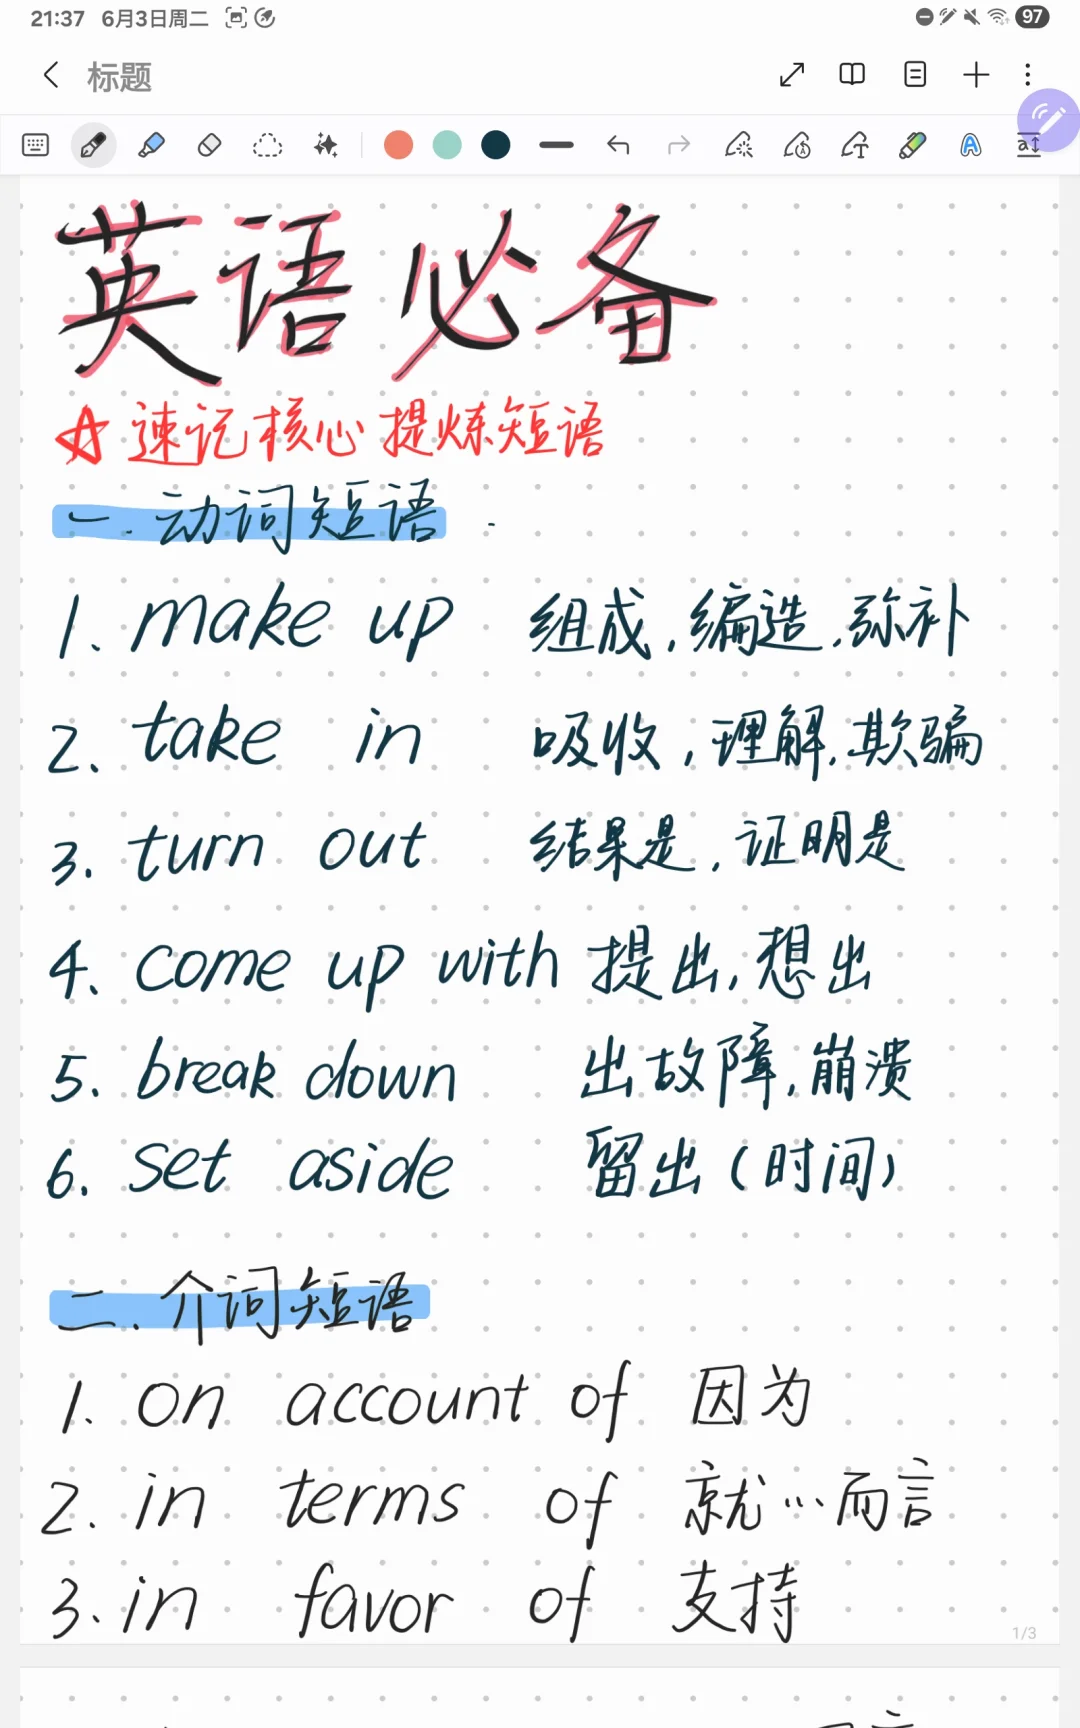 21:37 6月3日周二 97
标题
英语必备
☆ 速记核心提炼短语
一.动词短语
1. make up 组成,编造,弥补
2. take in 吸收,理解,欺骗
3. turn out 结果是,证明是
4. come up with 提出,想出
5. break down 出故障,崩溃
6. set aside 留出(时间)
二.介词短语
1. on account of 因为
2. in terms of 就…而言
3. in favor of 支持
1/3